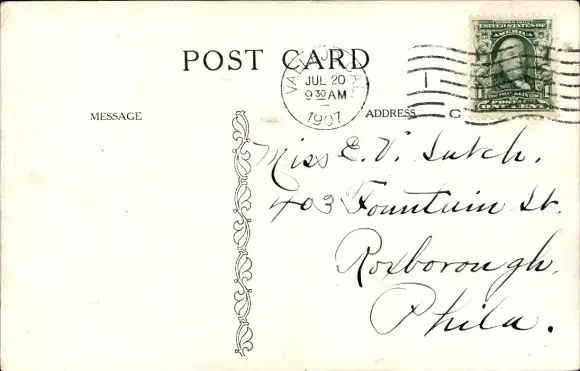 POST CARD
VALLEJO, CAL.
JUL 20
9 30 AM
1907
UNITED STATES OF
AMERICA
FRANKLIN
POSTAGE
ONE CENT
MESSAGE
ADDRESS
Miss E. V. Sutch.
403 Fountain St.
Roxborough.
Phila.